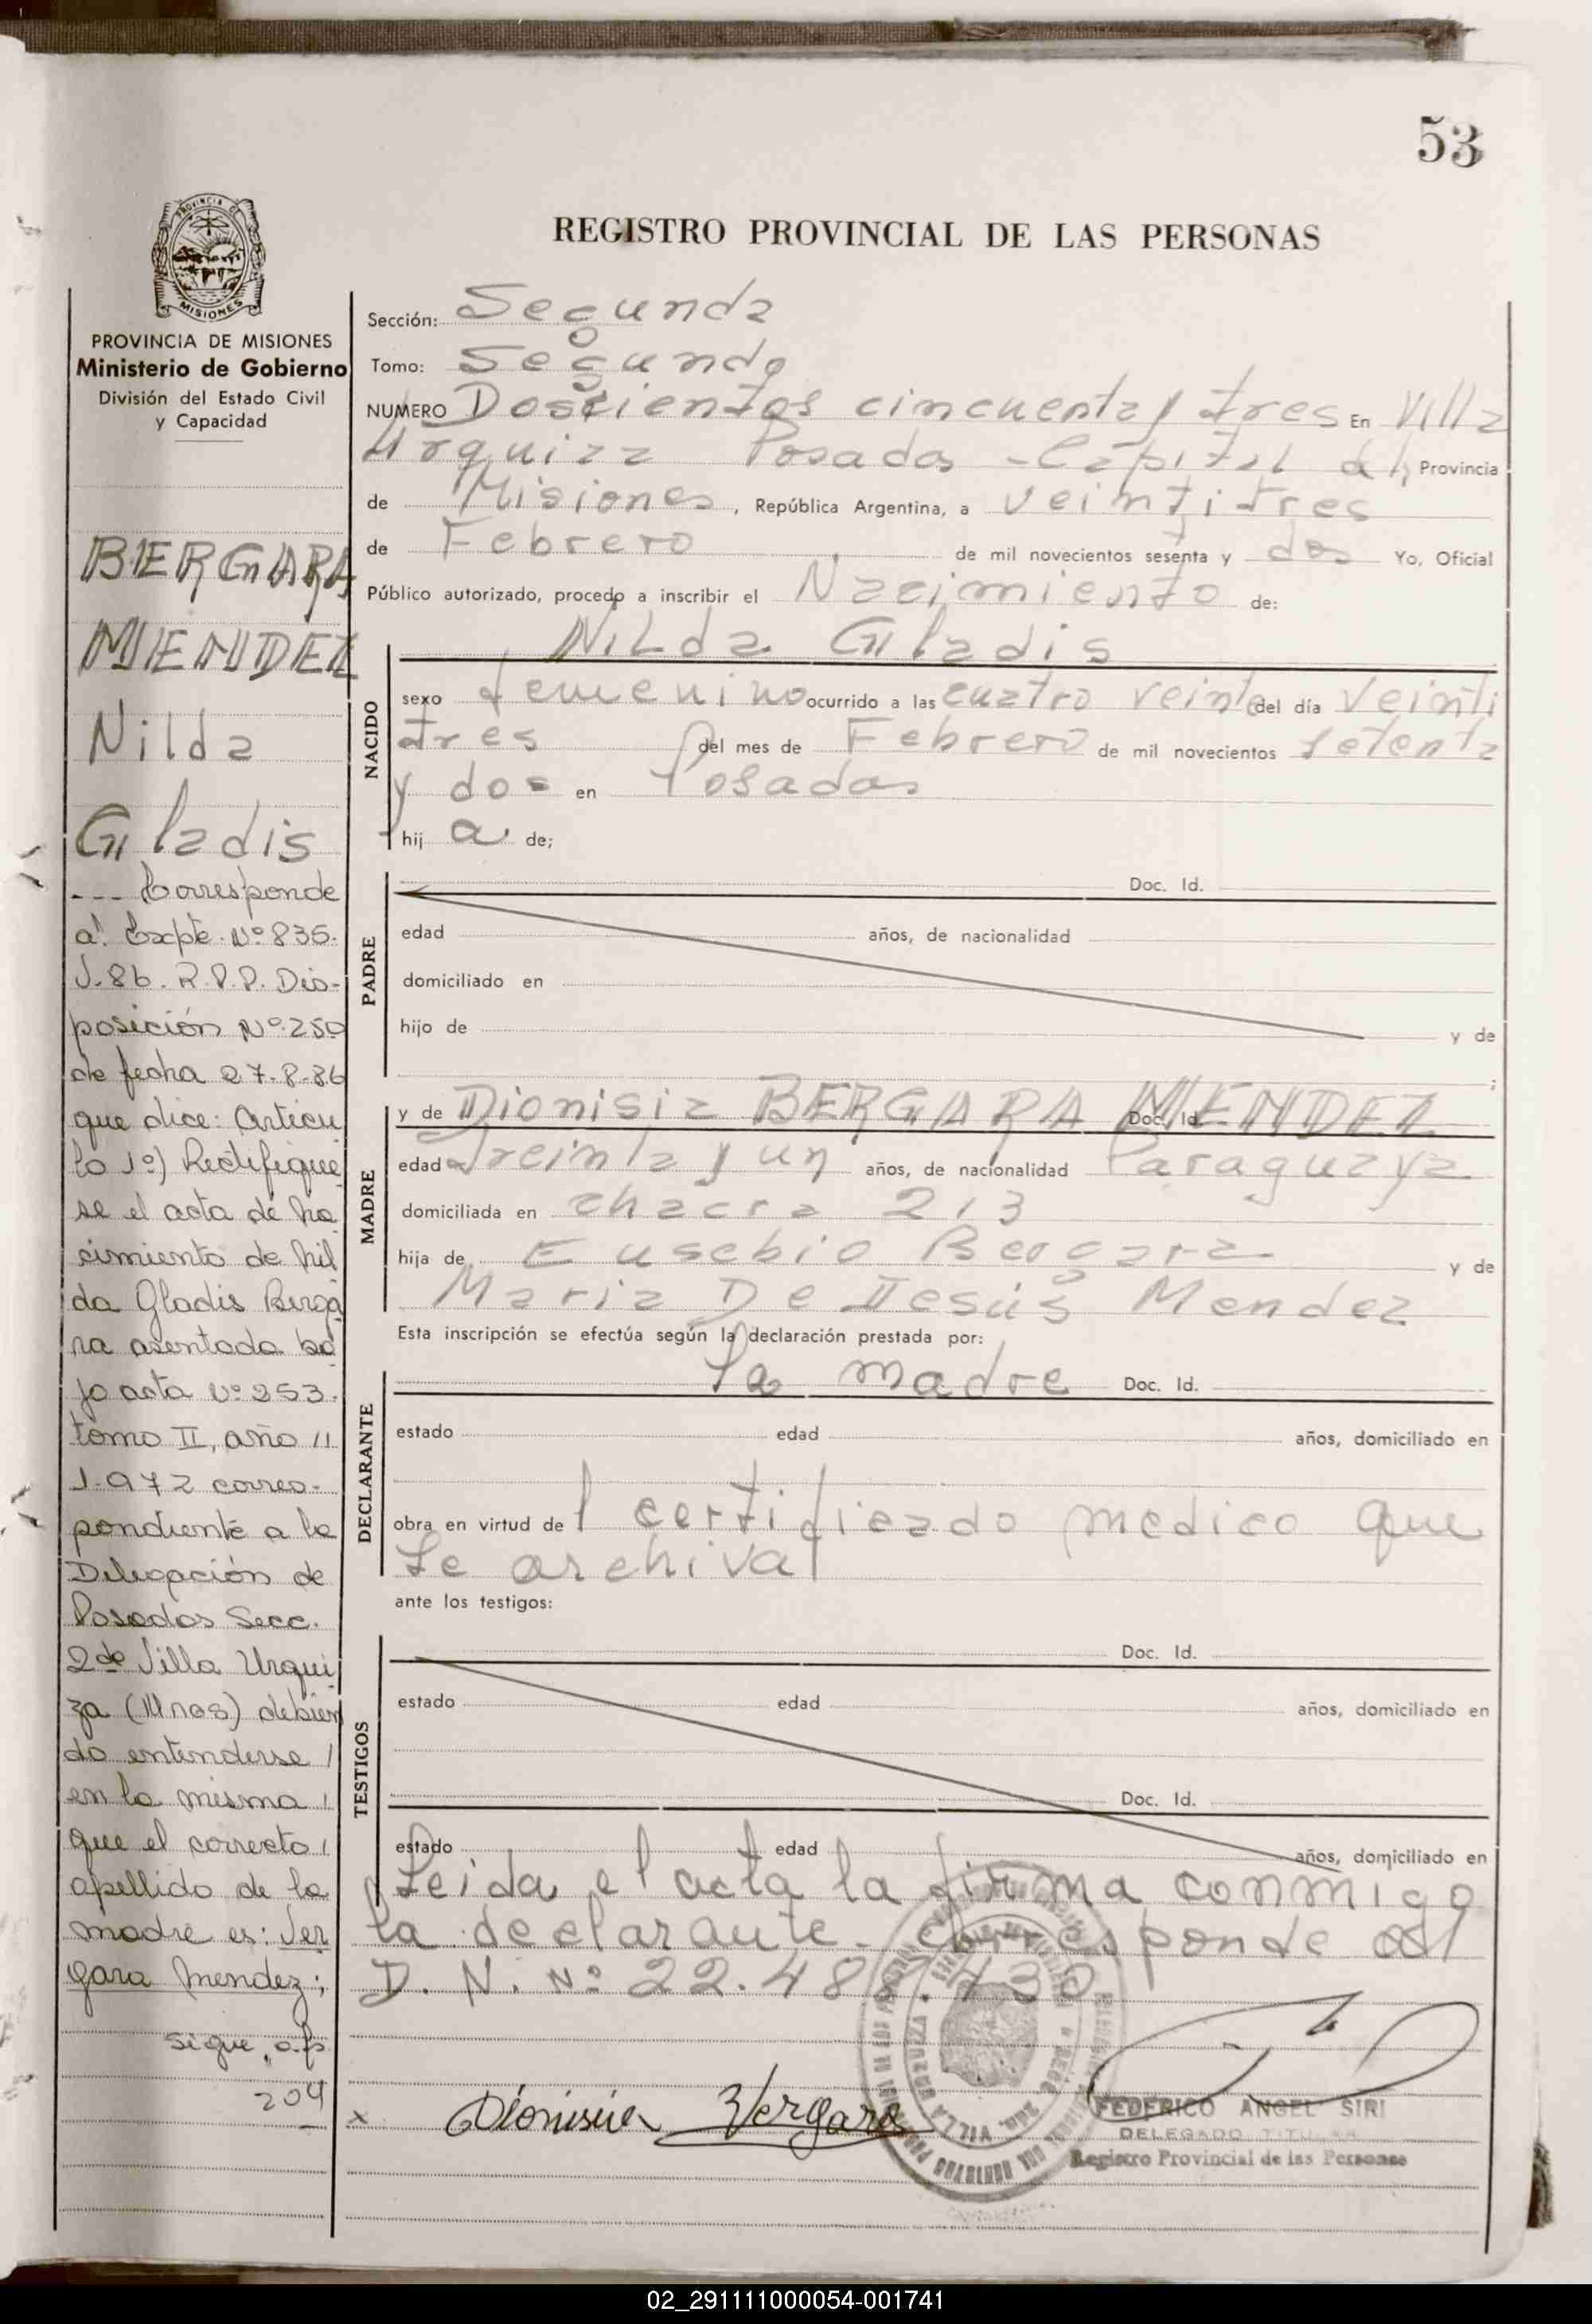 53
REGISTRO PROVINCIAL DE LAS PERSONAS
MISIONES
PROVINCIA DE MISIONES
Ministerio de Gobierno
División del Estado Civil
y Capacidad
BERGARA
MENDEZ
Nilda
Gladis
--- Corresponde
a! Expte. Nº 835.
J.86. R.P.P. Dis-
posición Nº 250
de fecha 27-8-86
que dice: Artícu
lo 1º) Rectifíque
se el acta de na
cimiento de Nil
da Gladis Berga
ra asentada ba
jo acta Nº 253.
tomo II, año //
1.972 corres-
pondiente a la
Delegación de
Posadas Secc.
2da Villa Urqui
za (Mnes) debien
do entenderse /
en la misma /
que el correcto /
apellido de la
madre es: Ver
gara Mendez;
sigue a fs
204
Sección: Segunda
Tomo: Segundo
NUMERO Doscientos cincuenta y tres En Villa
Urquiza Posadas - Capital de la Provincia
de Misiones, República Argentina, a veintitres
de Febrero de mil novecientos sesenta y dos Yo, Oficial
Público autorizado, procedo a inscribir el Nacimiento de:
Nilda Gladis
NACIDO
sexo femenino ocurrido a las cuatro veinte del día Veinti
tres del mes de Febrero de mil novecientos setenta
y dos en Posadas
hij a de;
PADRE
Doc. Id.
edad años, de nacionalidad
domiciliado en
hijo de y de
;
MADRE
y de Dionisia BERGARA MENDEZ Doc. Id.
edad treinta y un años, de nacionalidad Paraguaya
domiciliada en chacra 213
hija de Eusebio Bergara y de
Maria De Jesús Mendez
Esta inscripción se efectúa según la declaración prestada por:
DECLARANTE
la madre Doc. Id.
estado edad años, domiciliado en
obra en virtud del certificado medico que
se archiva
ante los testigos:
TESTIGOS
Doc. Id.
estado edad años, domiciliado en
Doc. Id.
estado edad años, domiciliado en
Leida el acta la firma conmigo
la declarante. Corresponde al
D. N. Nº 22.48 .430
x Dionisia Vergara
FEDERICO ANGEL SIRI
DELEGADO TITULAR
Registro Provincial de las Personas
02_291111000054-001741